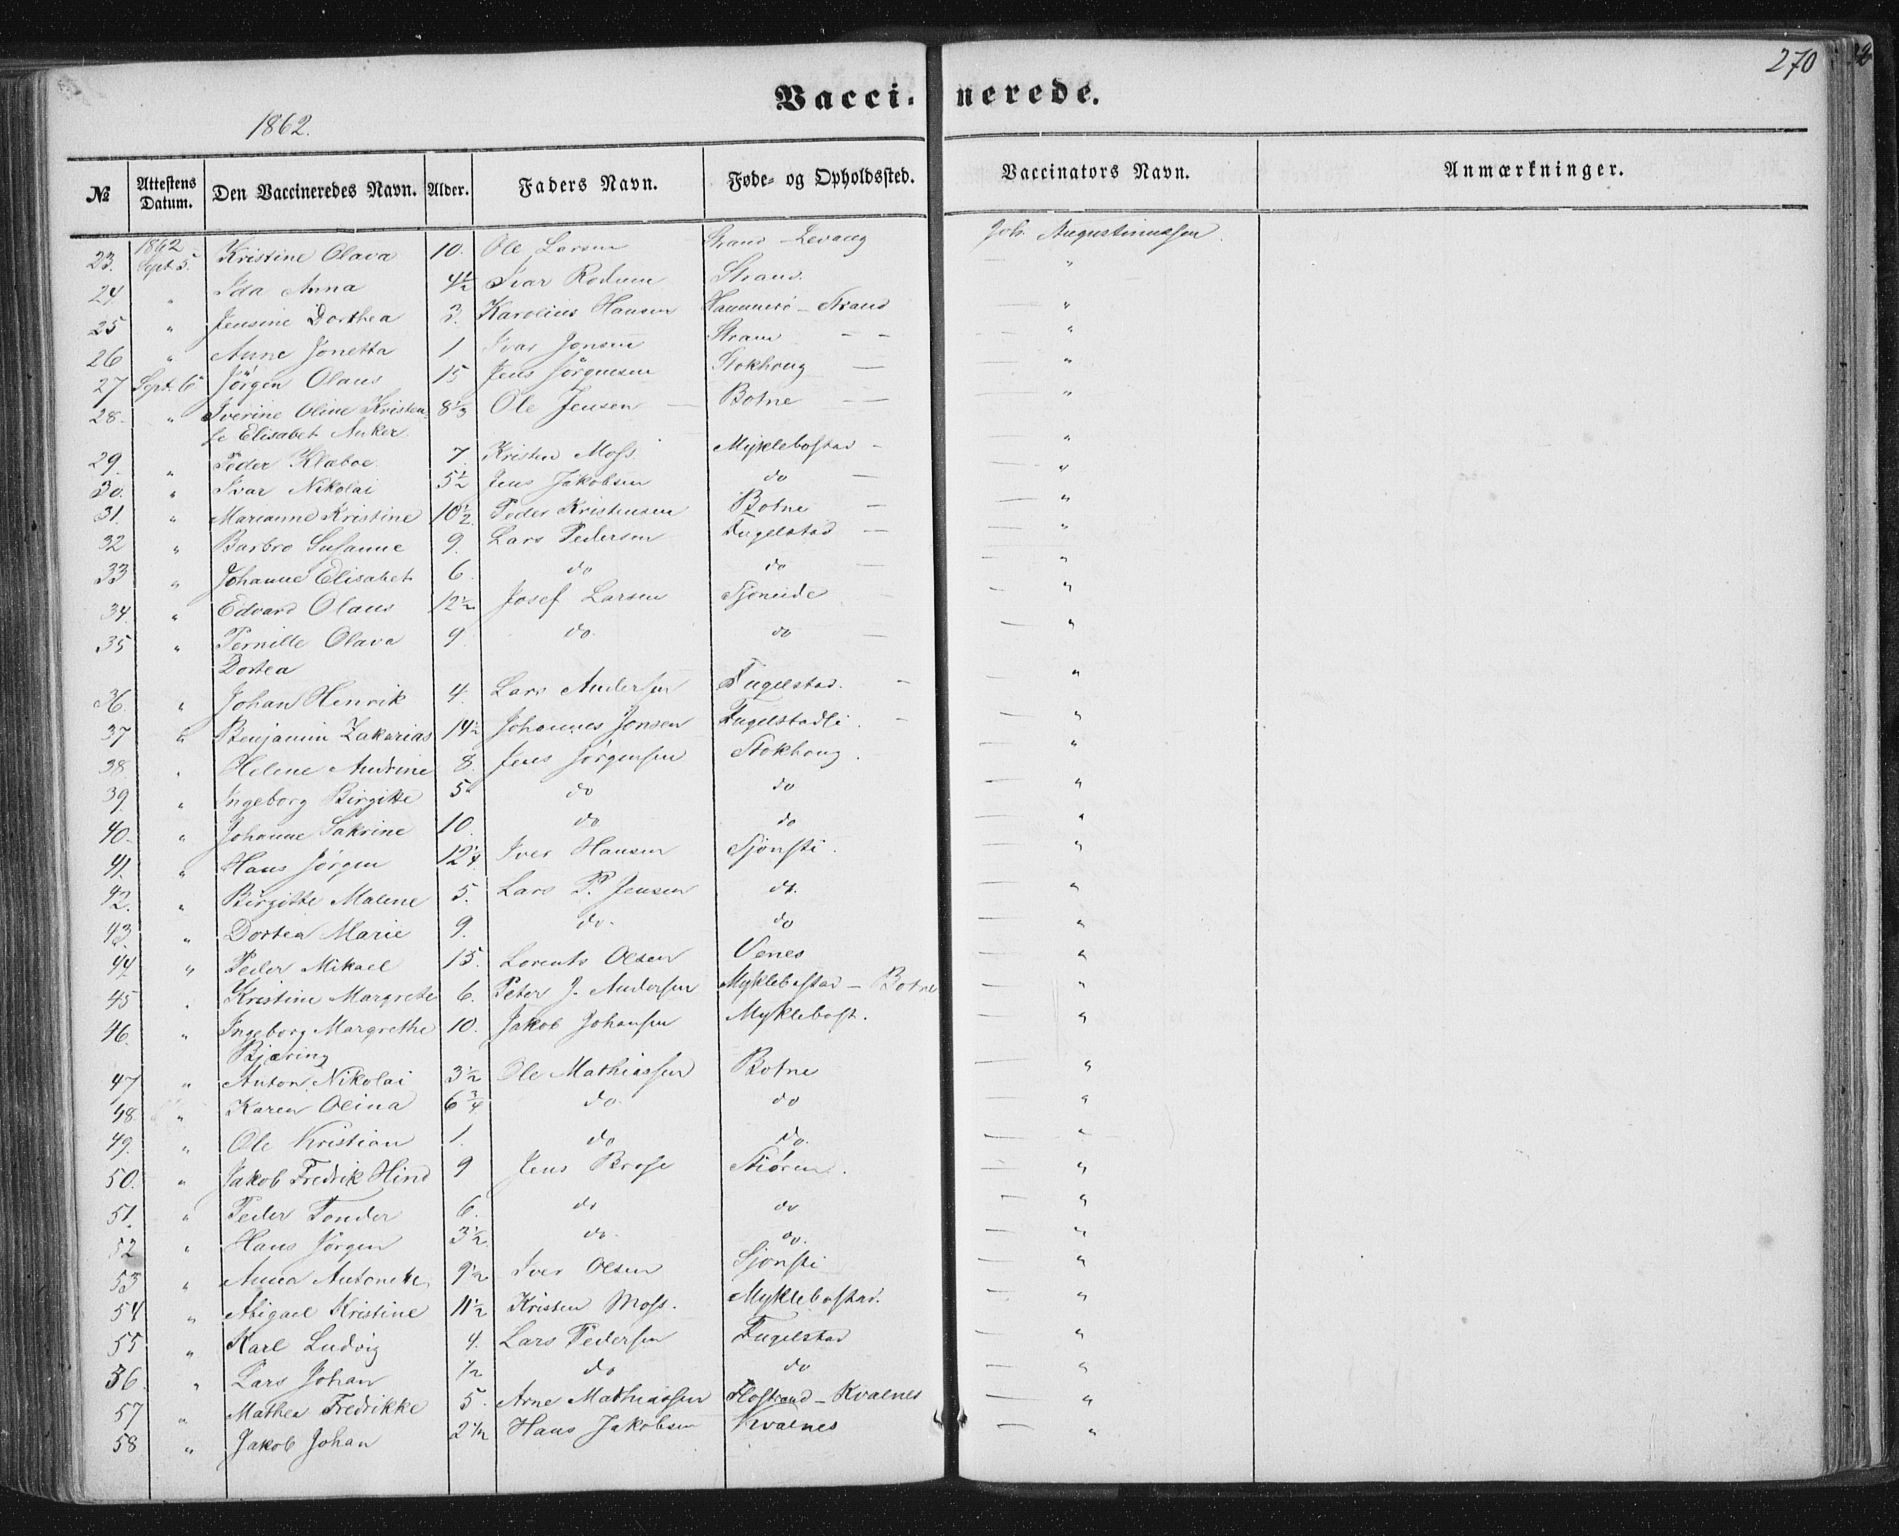 270
Vaccinerede.
1862.
№ Attestens Datum. Den Vaccineredes Navn. Alder. Faders Navn. Føde- og Opholdssted. Vaccinators Navn. Anmærkninger.
23. 1862 Sept. 5. Kristine Olava 10. Ole Larsen Strand - Levang Joh. Augustinussen.
24 " Ida Anna 4½ Ivar Rodum Strand. "
25 " Jensine Dorthea 3. Karolius Hansen Hammerö - Strand "
26 " Anne Jonetta 1 Ivar Jonsen Strand — "
27 Sept. 6 Jörgen Olaus 15 Jens Jörgensen Stokhoug — "
28. " Iverine Oline Kristen- 8⅓ Ole Jensen — Botne — "
se Elisabet Anker.
29. " Peder Klaboe 7. Kristen Moss. Myklebostad - "
30. " Ivar Nikolai 5½ Jens Jakobsen do — "
31. " Marianne Kristine 10½ Peder Kristensen Botne — "
32 " Barbro Susanne 9. Lars Pedersen Fugelstad — "
33 " Johanne Elisabet 6. do do — "
34. " Edvard Olaus 12½ Josef Larsen Sjoneide — "
35 " Pernille Olava 9. do. do — "
Dortea
36. " Johan Henrik 4. Lars Andersen Fugelstad. - "
37 " Benjamin Zakarias 14½ Johannes Jonsen Fugelstadli. - "
38. " Helene Andrine 8. Jens Jörgensen Stokhoug. "
39. " Ingeborg Birgitte 5. do do "
40. " Johanne Sakrine 10. do do "
41. " Hans Jörgen 12¼. Iver Hansen Sjonsti. "
42. " Birgitte Malene 5. Lars P. Jensen do. "
43. " Dortea Marie 9. do. do "
44. " Peder Mikael 15. Lorents Olsen Venes "
45 " Kristine Margrete 6. Peter J. Andersen Myklebostad - Botne "
46. " Ingeborg Margrethe 10. Jakob Johansen Myklebost. "
Bjæring
47 " Anton Nikolai 3½ Ole Mathiassen Botne "
48. " Karen Olina 6¾ do. do "
49. " Ole Kristian 1. do do. "
50. " Jakob Fredrik Hind 9 Jens Brose "
51. " Peder Tonder 6. do do "
52 " Hans Jörgen 3½ do. do. "
53 " Anna Antonette 9½ Iver Olsen Sjonsti "
54 " Abigael Kristine 11½ Kristen Moss. Myklebostad. "
55 " Karl Ludvig 4. Lars Pedersen Fugelstad "
56. " Lars Johan ½ do do "
57 " Mathea Fredrikke 5. Arne Mathiassen Flostrand - Kvalnes "
58 " Jakob Johan 2½ Hans Jakobsen Kvalnes "